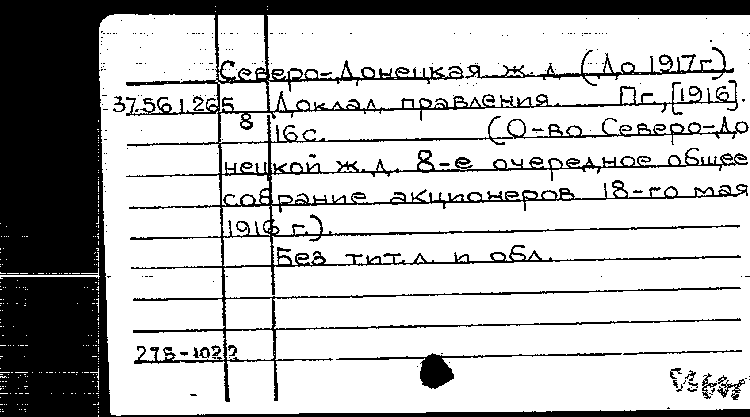 Северо-Донецкая ж. д. (До 1917г.)
37.56 1.265 Доклад правления. Пг., [1916].
8 16 с. (О-во Северо-До
нецкой ж. д. 8-е очередное общее
собрание акционеров 18-го мая
1916 г.).
Без тит. л. и обл.